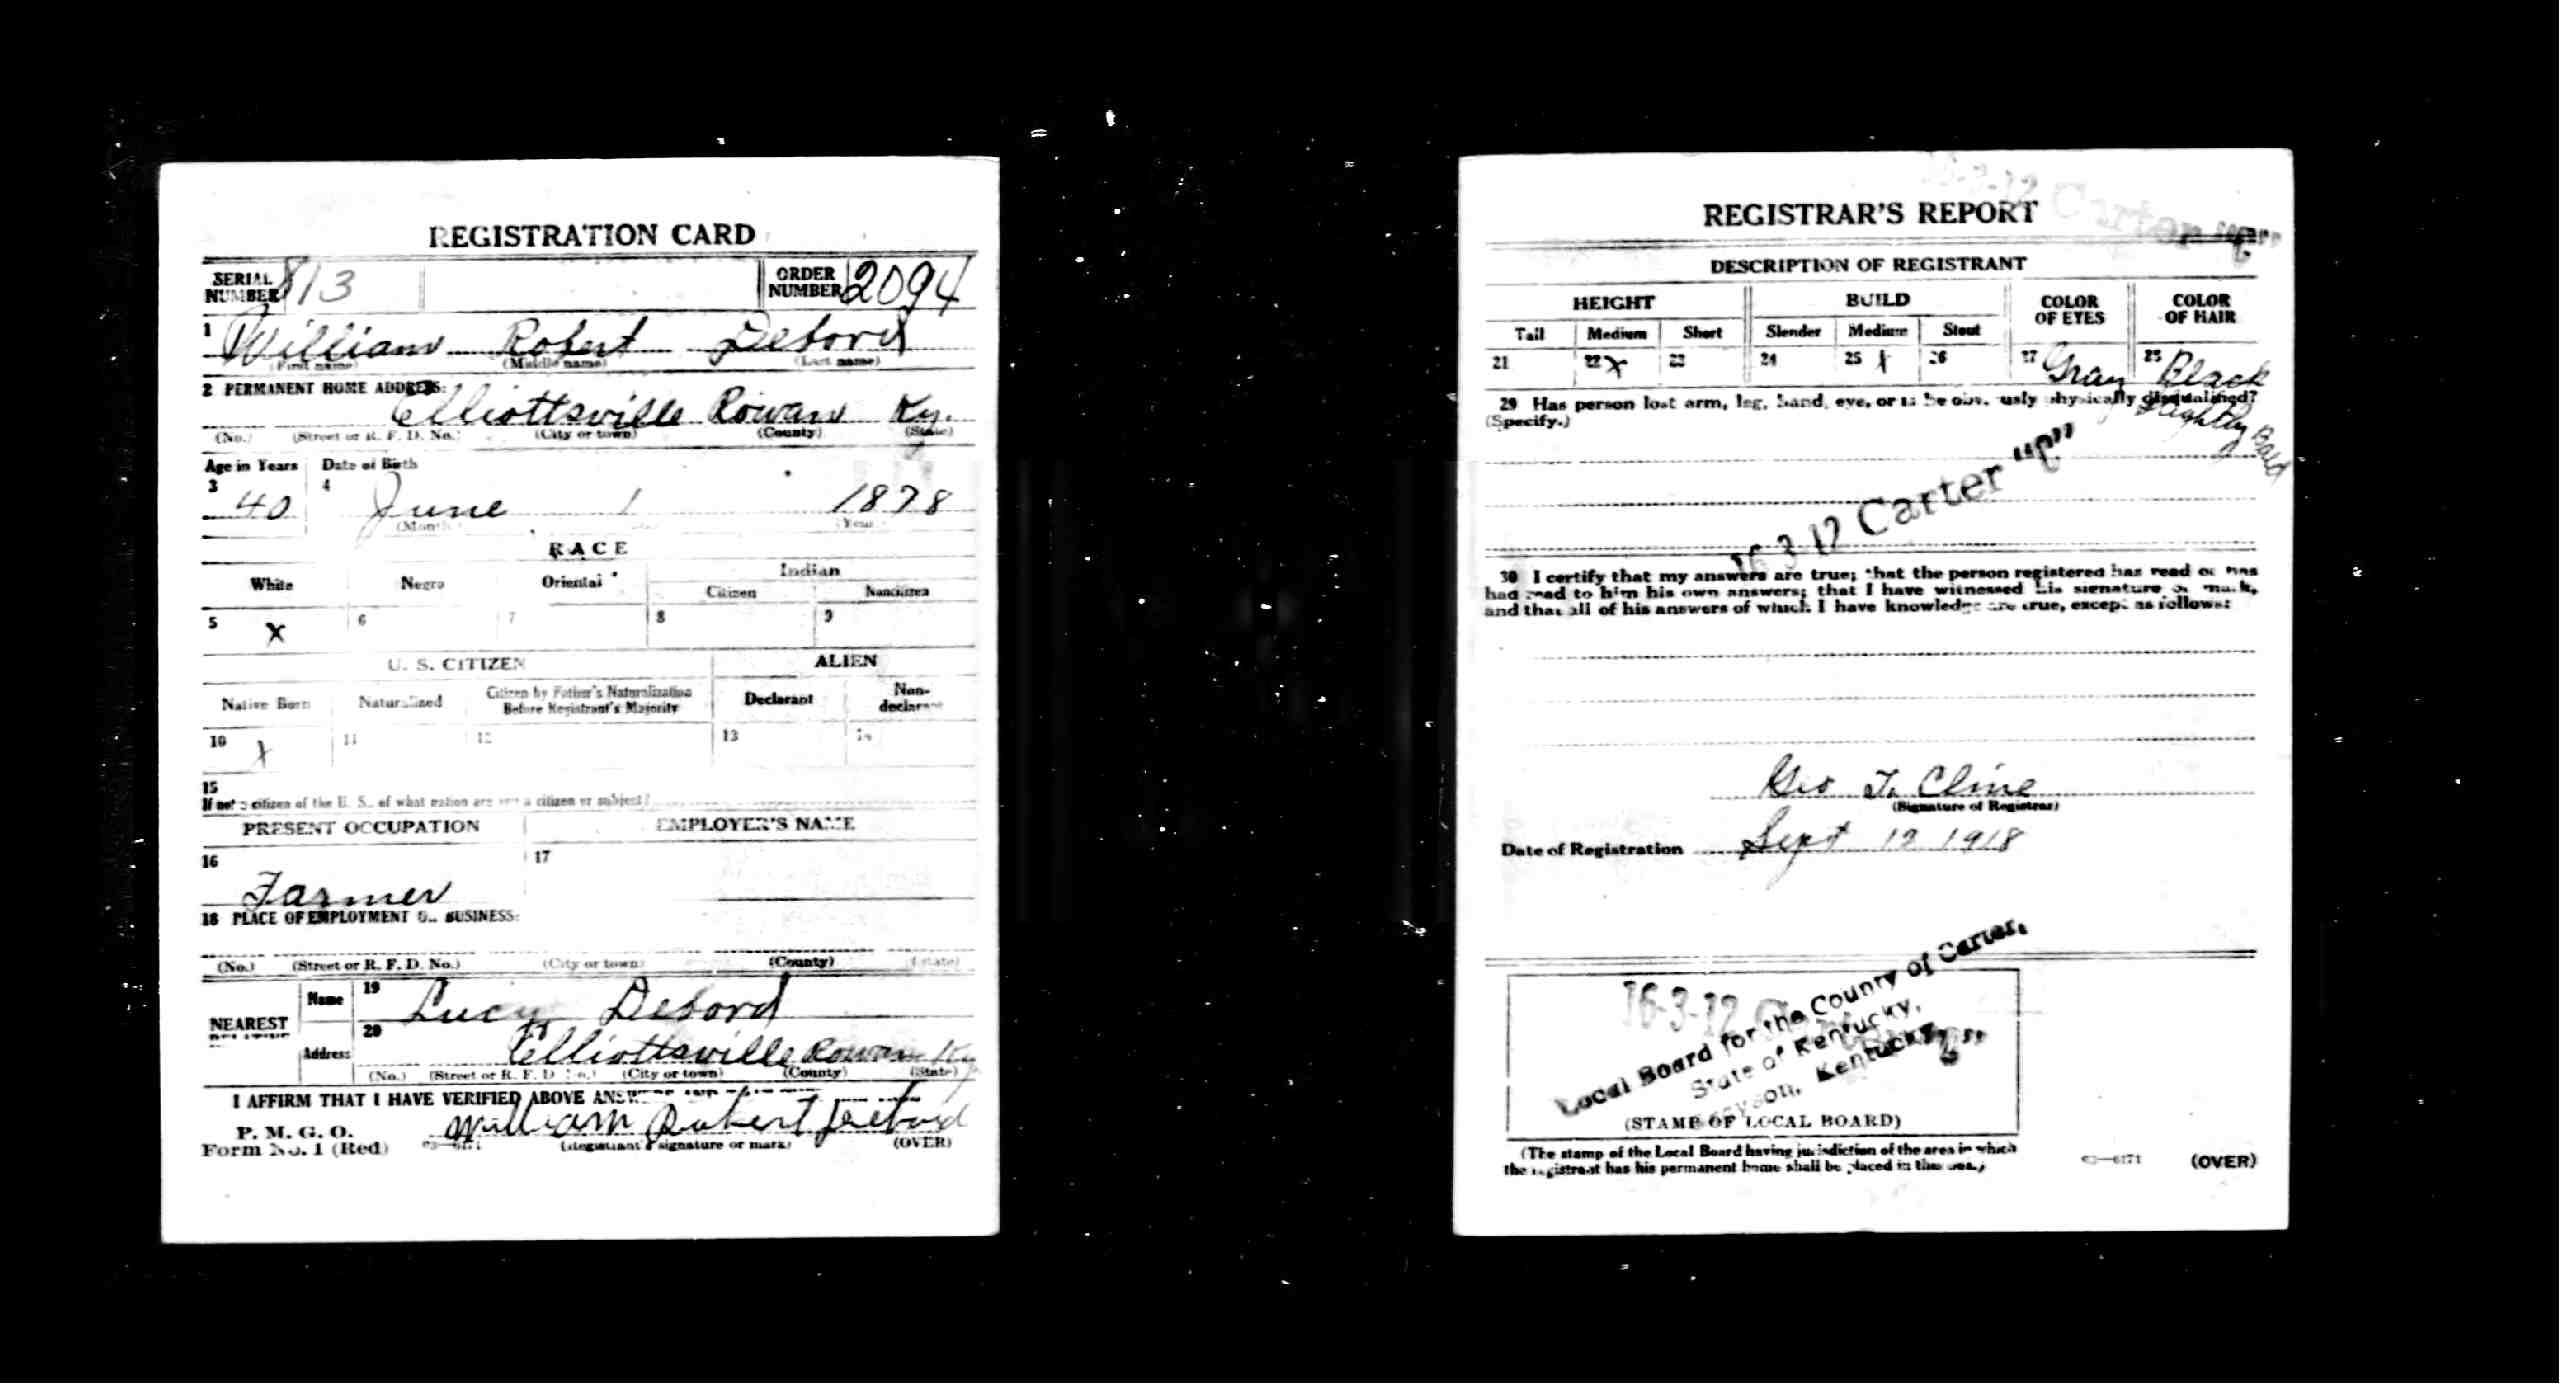 REGISTRATION CARD
SERIAL NUMBER 813 ORDER NUMBER 2094
1 William Robert Debord
(First name) (Middle name) (Last name)
2 PERMANENT HOME ADDRESS:
Elliottsville Rowan Ky.
(No.) (Street or R. F. D. No.) (City or town) (County) (State)
Age in Years Date of Birth
3 40 4 June 1 1878
(Month) (Year)
RACE
White Negro Oriental Indian
Citizen Noncitizen
5 X 6 7 8 9
U. S. CITIZEN ALIEN
Native Born Naturalized Citizen by Father's Naturalization Before Registrant's Majority Declarant Non-declarant
10 X 11 12 13 14
15
If not a citizen of the U. S., of what nation are you a citizen or subject?
PRESENT OCCUPATION EMPLOYER'S NAME
16 Farmer 17
18 PLACE OF EMPLOYMENT OR BUSINESS:
(No.) (Street or R. F. D. No.) (City or town) (County) (State)
NEAREST Name 19 Lucy Debord
Address 20 Elliottsville Rowan Ky
(No.) (Street or R. F. D. No.) (City or town) (County) (State)
I AFFIRM THAT I HAVE VERIFIED ABOVE
P. M. G. O.
Form No. 1 (Red) William Robert Debord
(Registrant's signature or mark) (OVER)
16-3-12 Carter
REGISTRAR'S REPORT
DESCRIPTION OF REGISTRANT
HEIGHT BUILD COLOR OF EYES COLOR OF HAIR
Tall Medium Short Slender Medium Stout
21 22 X 23 24 25 X 26 27 Gray 28 Black
Slightly Bald
29 Has person lost arm, leg, hand, eye, or is he obviously physically disqualified?
(Specify.)
16 3 12 Carter "C"
30 I certify that my answers are true; that the person registered has read or has
had read to him his own answers; that I have witnessed his signature or mark,
and that all of his answers of which I have knowledge are true, except as follows:
Geo T. Cline
(Signature of Registrar)
Date of Registration Sept 12 1918
16-3-12
Local Board for the County of Carter,
State of Kentucky,
Grayson, Kentucky
(STAMP OF LOCAL BOARD)
(The stamp of the Local Board having jurisdiction of the area in which
the registrant has his permanent home shall be placed in this box.)
03—6171 (OVER)